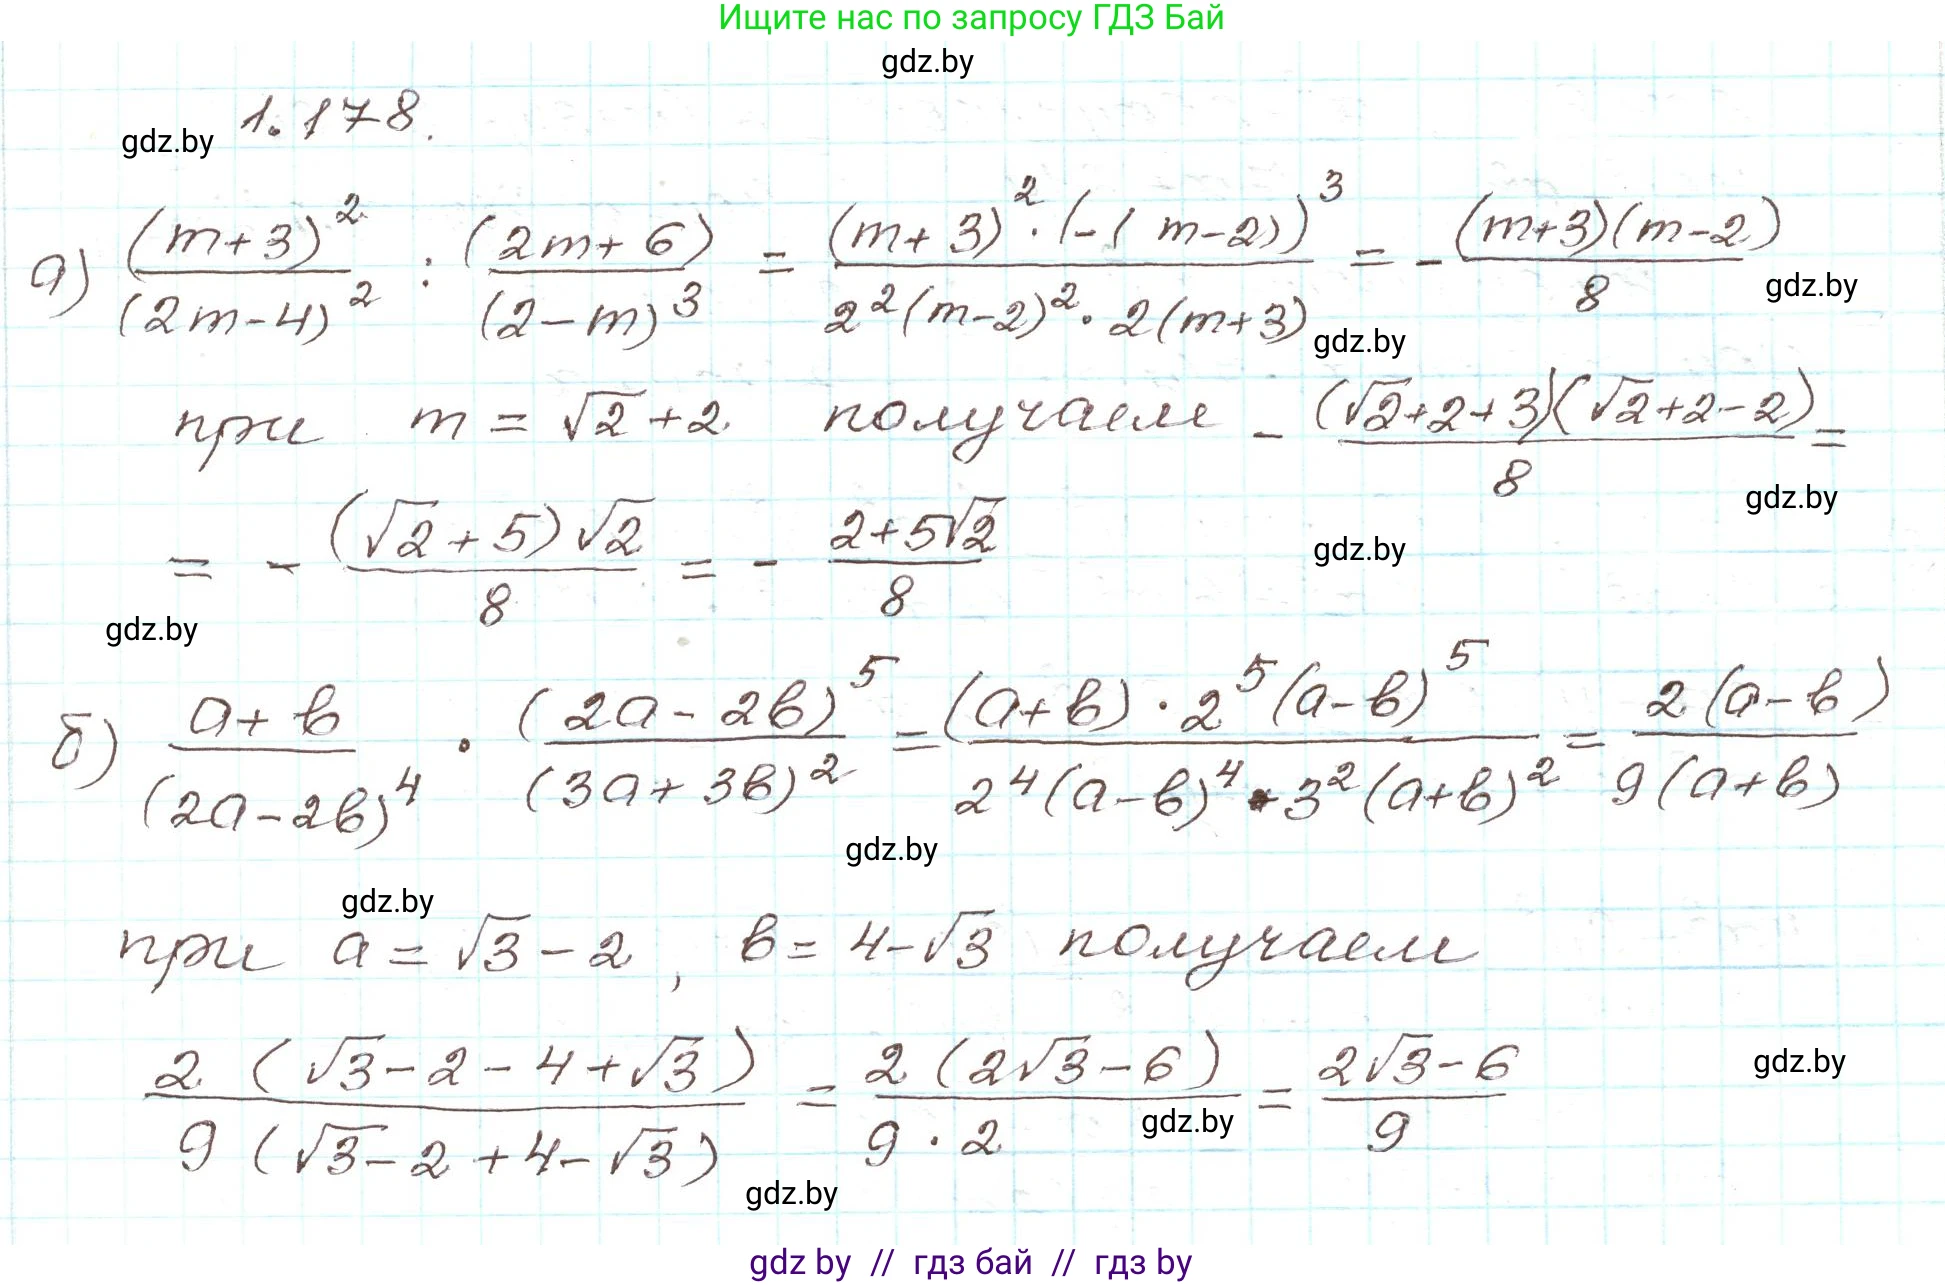 Ищите нас по запросу ГДЗ Бай
gdz.by
gdz.by 1.178.
а) (m+3)² / (2m-4)² : (2m+6) / (2-m)³ = (m+3)²·(-(m-2))³ / 2²(m-2)²·2(m+3) = - (m+3)(m-2) / 8
gdz.by
gdz.by
при m = √2+2 получаем - (√2+2+3)(√2+2-2) / 8 =
gdz.by
= - (√2+5)√2 / 8 = - 2+5√2 / 8
gdz.by
gdz.by
б) a+b / (2a-2b)⁴ · (2a-2b)⁵ / (3a+3b)² = (a+b)·2⁵(a-b)⁵ / 2⁴(a-b)⁴·3²(a+b)² = 2(a-b) / 9(a+b)
gdz.by
gdz.by
при a = √3-2, b = 4-√3 получаем
2(√3-2-4+√3) / 9(√3-2+4-√3) = 2(2√3-6) / 9·2 = 2√3-6 / 9
gdz.by
gdz.by
gdz.by
gdz by // гдз бай // гдз by